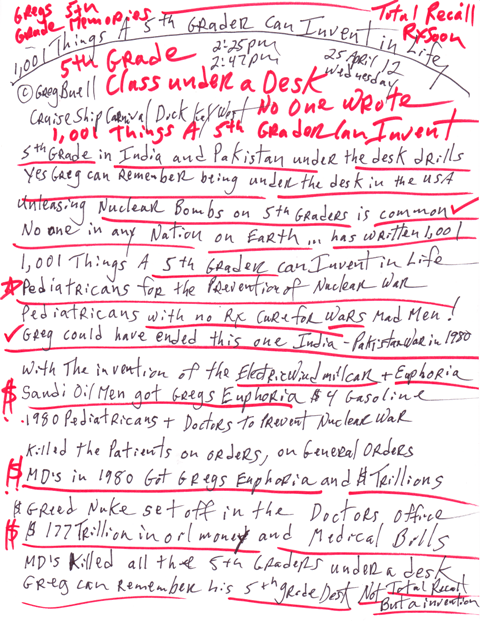 Gregs 5th
Grade Memories
Total Recall
Rx Soon
1,001 Things A 5th Grader Can Invent in Life
5th Grade
2:25pm
2:47pm
25 April 12
Wednesday
© Greg Buell
Class under a Desk
Cruise Ship Carnival Dock Key West
No One Wrote
1,001 Things A 5th Grader Can Invent
5th Grade in India and Pakistan under the desk drills
Yes Greg can Remember being under the desk in the USA
Unleasing Nuclear Bombs on 5th Graders is common
No one in any Nation on Earth... has written 1,001
1,001 Things A 5th Grader can Invent in Life
Pediatricans for the Prevention of Nuclear War
Pediatricans with no Rx Cure for Wars Mad Men!
Greg could have ended this one India - Pakistan War in 1980
With The invention of the ElectricWindmillcar + Euphoria
$ Saudi Oil Men got Gregs Euphoria $4 Gasoline
1980 Pediatricans + Doctors to Prevent Nuclear War
Killed the Patients on orders, on General Orders
$ MD's in 1980 Got Gregs Euphoria and $ Trillions
$ Greed Nuke set off in the Doctors office
$ $177 Trillion in oil money and Medical Bills
MD's Killed all the 5th Graders under a desk
Greg can Remember his 5th grade Dest Not Total Recall
But a invention